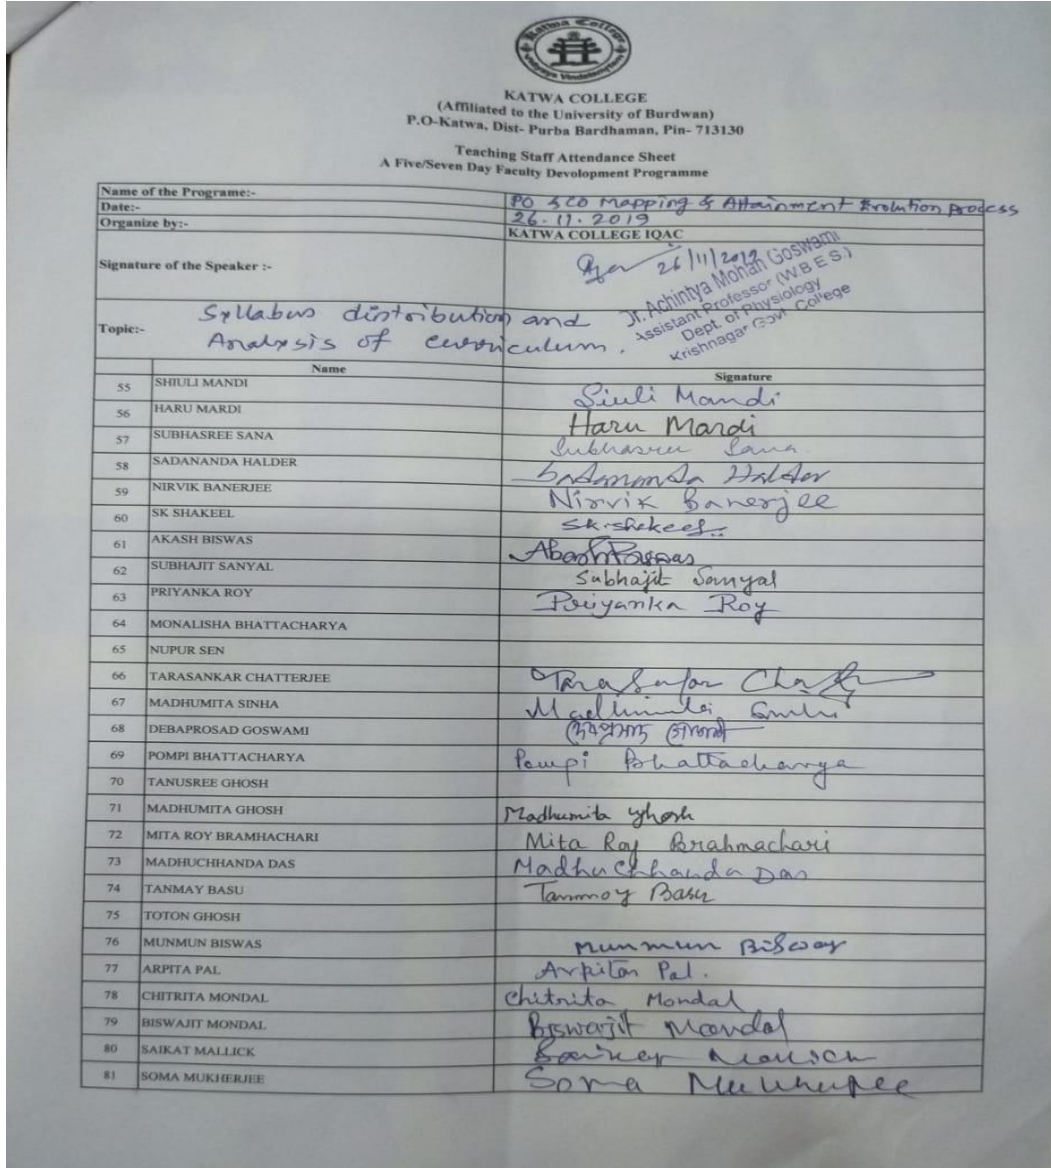 Katwa College
Vidyaya Vindatemritam
KATWA COLLEGE
(Affiliated to the University of Burdwan)
P.O-Katwa, Dist- Purba Bardhaman, Pin- 713130
Teaching Staff Attendance Sheet
A Five/Seven Day Faculty Devolopment Programme
Name of the Programe:- PO & CO Mapping & Attainment Evolution process
Date:- 26.11.2019
Organize by:- KATWA COLLEGE IQAC
Signature of the Speaker :- 26/11/2019
Dr. Achintya Mohan Goswami
Assistant Professor (W.B.E.S.)
Dept. of Physiology
Krishnagar Govt. College
Topic:- Syllabus distribution and
Analysis of curriculum.
Name Signature
55 SHIULI MANDI Siuli Mandi
56 HARU MARDI Haru Mardi
57 SUBHASREE SANA Subhasree Sana
58 SADANANDA HALDER Sadananda Halder
59 NIRVIK BANERJEE Nirvik Banerjee
60 SK SHAKEEL SK. Shakeel
61 AKASH BISWAS Akash Biswas
62 SUBHAJIT SANYAL Subhajit Sanyal
63 PRIYANKA ROY Priyanka Roy
64 MONALISHA BHATTACHARYA
65 NUPUR SEN
66 TARASANKAR CHATTERJEE
67 MADHUMITA SINHA Madhumita Sinha
68 DEBAPROSAD GOSWAMI দেবপ্রসাদ গোস্বামী
69 POMPI BHATTACHARYA Pompi Bhattacharya
70 TANUSREE GHOSH
71 MADHUMITA GHOSH Madhumita Ghosh
72 MITA ROY BRAMHACHARI Mita Roy Brahmachari
73 MADHUCHHANDA DAS Madhuchhanda Das
74 TANMAY BASU Tanmoy Basu
75 TOTON GHOSH
76 MUNMUN BISWAS Munmun Biswas
77 ARPITA PAL Arpita Pal.
78 CHITRITA MONDAL Chitrita Mondal
79 BISWAJIT MONDAL Biswajit Mondal
80 SAIKAT MALLICK Saikat Mallick
81 SOMA MUKHERJEE Soma Mukherjee